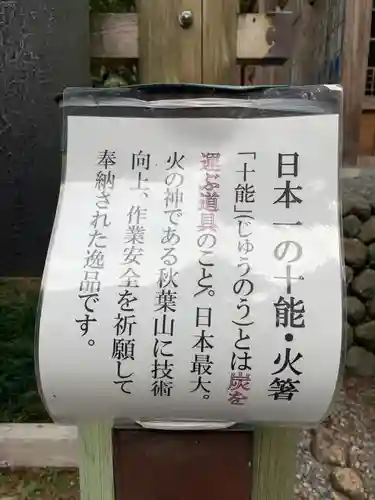 日本一の十能・火箸
「十能」(じゅうのう)とは炭を
運ぶ道具のこと。日本最大。
火の神である秋葉山に技術
向上、作業安全を祈願して
奉納された逸品です。